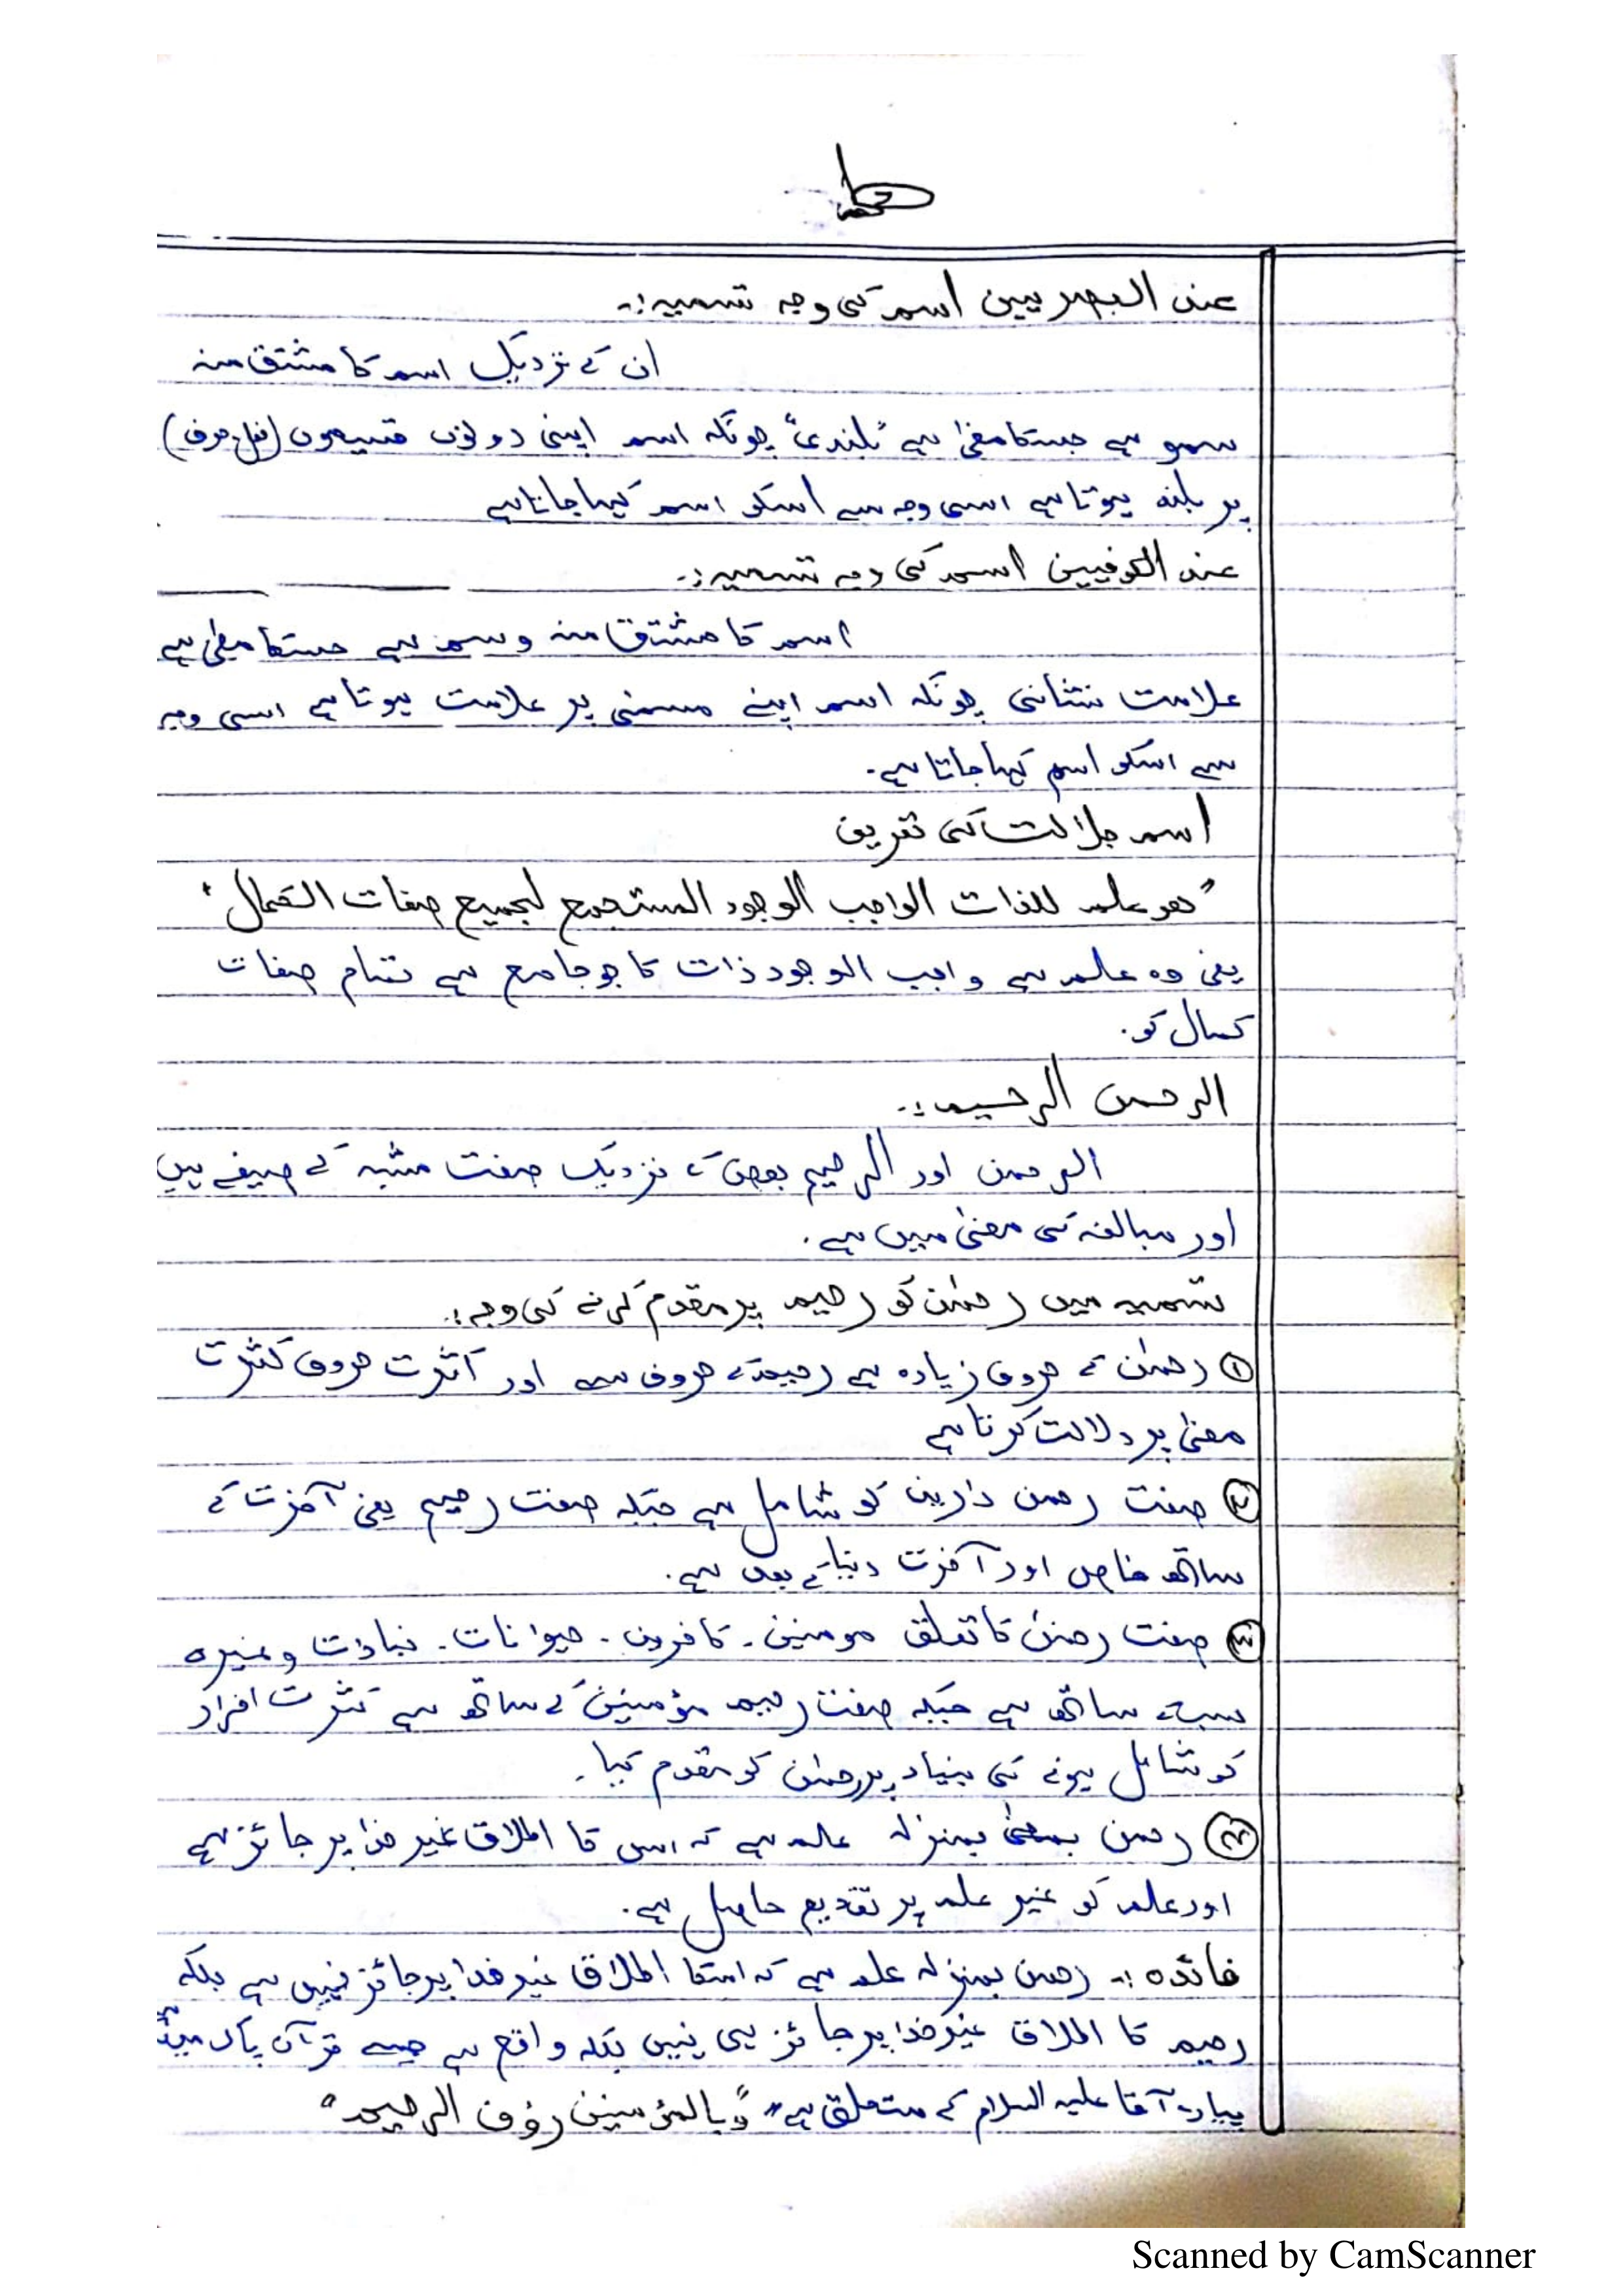 عند البصریین اسم کی وجہ تسمیہ:۔
ان کے نزدیک اسم کا مشتق منہ
سمو ہے جسکا معنیٰ ہے "بلندی" چونکہ اسم اپنی دونوں قسیموں (فعل، حرف)
پر بلند ہوتا ہے اسی وجہ سے اسکو اسم کہا جاتا ہے
عند الکوفیین اسم کی وجہ تسمیہ:۔
اسم کا مشتق منہ وسم ہے جسکا معنیٰ ہے
علامت نشانی چونکہ اسم اپنے مسمٰی پر علامت ہوتا ہے اسی وجہ
سے اسکو اسم کہا جاتا ہے۔
اسم جلالت کی تعریف
"ھو علم للذات الواجب الوجود المستجمع لجمیع صفات الکمال"
یعنی وہ علم ہے واجب الوجود ذات کا جو جامع ہے تمام صفات
کمال کو۔
الرحمن الرحیم:۔
الرحمن اور الرحیم بعض کے نزدیک صفت مشبہ کے صیغے ہیں
اور مبالغہ کی معنیٰ میں ہے۔
تسمیہ میں رحمٰن کو رحیم پر مقدم کرنے کی وجہ:۔
① رحمٰن کے حروف زیادہ ہے رحیم کے حروف سے اور کثرت حروف کثرت
معنیٰ پر دلالت کرتا ہے
② صفت رحمن دارین کو شامل ہے جبکہ صفت رحیم یعنی آخرت کے
ساتھ خاص اور آخرت دنیا کے بعد ہے۔
③ صفت رحمٰن کا تعلق مومنین۔ کافرون۔ حیوانات۔ نباتات وغیرہ
سب کے ساتھ ہے جبکہ صفت رحیم مؤمنین کے ساتھ ہے کثرت افراد
کو شامل ہونے کی بنیاد پر رحمٰن کو مقدم کیا۔
④ رحمن بمعنیٰ بمنزلہ علم ہے کہ اس کا اطلاق غیر خدا پر جائز ہے
اور علم کو غیر علم پر تقدیم حاصل ہے۔
فائدہ:۔ رحمن بمنزلہ علم ہے کہ اسکا اطلاق غیر خدا پر جائز نہیں ہے بلکہ
رحیم کا اطلاق غیر خدا پر جائز ہی نہیں بلکہ واقع ہے جیسے قرآن پاک میں
پیارے آقا علیہ السلام کے متعلق ہے "بالمؤمنین رؤف الرحیم"
Scanned by CamScanner